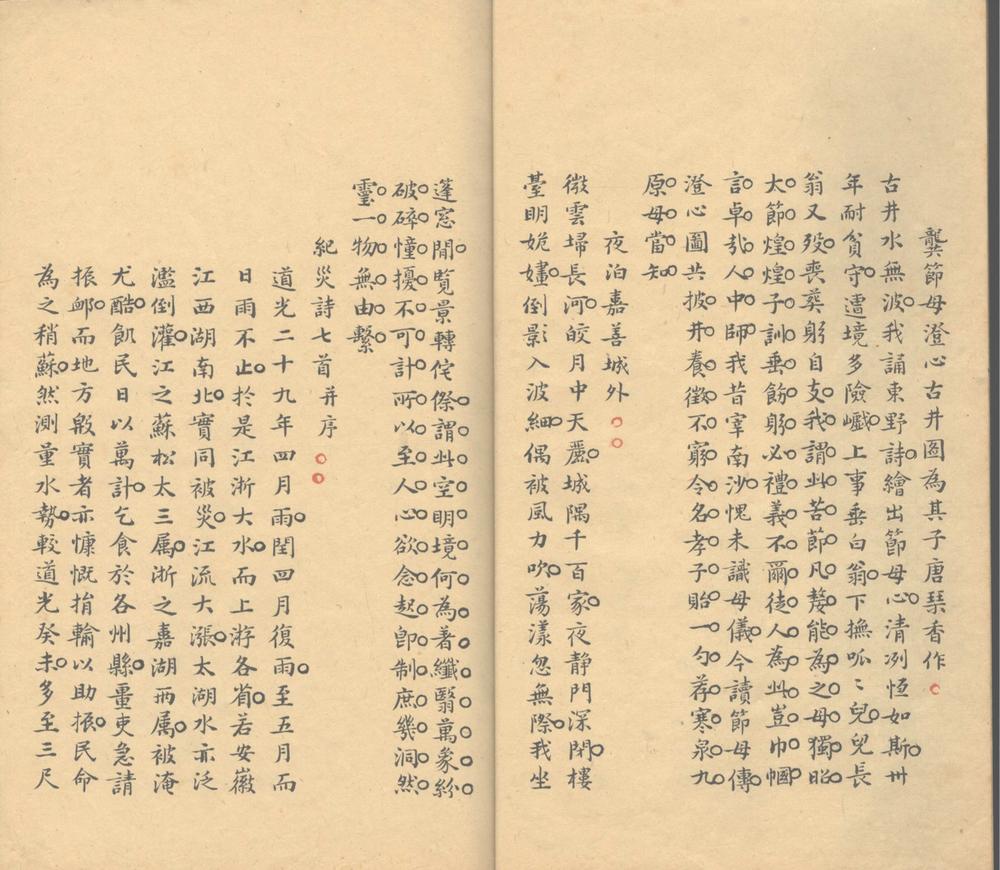 龔節母澄心古井圖為其子唐琹香作
古井水無波我誦東野詩繪出節母心清冽恒如斯卅
年耐貧守遭境多險巇上事垂白翁下撫呱〻兒兒長
翁又殁喪葬躬自支我謂此苦節凡嫠能為之母獨昭
太節煌煌子訓垂飭躬必禮義不爾徒人為此豈巾幗
言卓㢤人中師我昔宰南沙愧未識母儀今讀節母傳
澄心圖共披井養徵不窮令名孝子貽一勺荐寒泉九
原母當知
夜泊嘉善城外
微雲埽長河皎月中天麗城隅千百家夜静門深閉樓
臺明姽嫿倒影入波細偶被風力吹蕩漾忽無際我坐
蓬窓閒覽景轉侘傺謂此空明境何為著纖翳萬象紛
破碎憧擾不可計所以至人心欲念起卽制庶幾洞然
靈一物無由繫
紀災詩七首并序
道光二十九年四月雨閏四月復雨至五月而
日雨不止於是江浙大水而上游各省若安徽
江西湖南北實同被災江流大漲太湖水亦泛
濫倒灌江之蘇松太三属浙之嘉湖兩属被淹
尤酷飢民日以萬計乞食於各州縣董吏急請
振䘏而地方殷實者亦慷慨捐輸以助振民命
為之稍蘇然測量水勢較道光癸未多至三尺